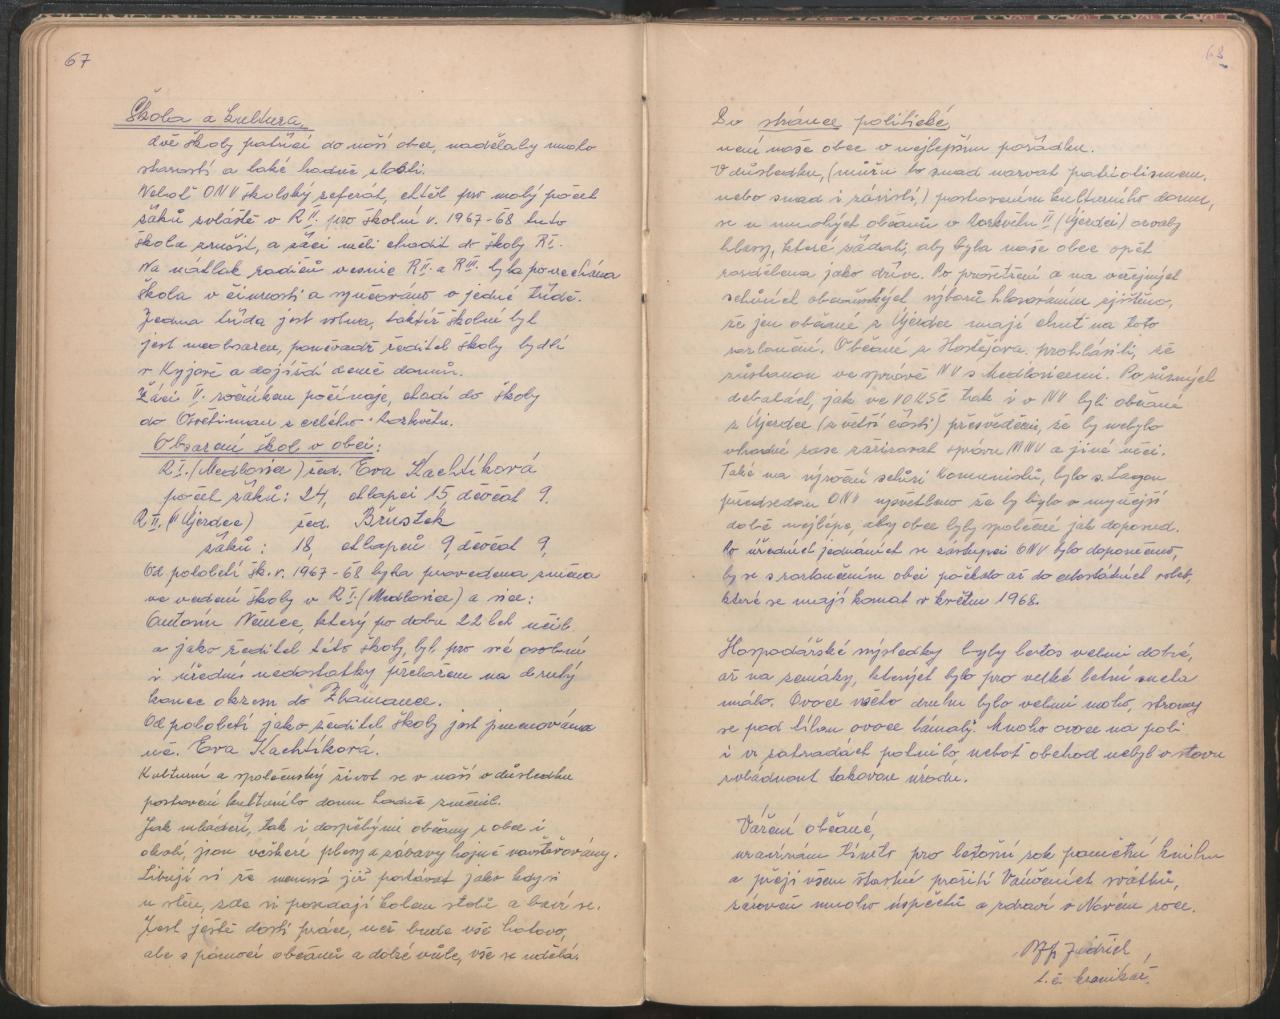 67
Škola a kultura.
dvě školy patřící do naší obce, nadělaly mnoho
starostí a také hodně zlosti.
Neboť ONV školský referát, chtěl pro malý počet
žáků zvláště v R II. pro školní r. 1967-68 tuto
škola zrušit, a žáci měli chodit do školy R I.
Na nátlak rodičů vesnic R II. a R III. byla ponechána
škola v činnosti a vyučováno v jedné třídě.
Jedna třída jest volna, taktéž školní byt
jest neobsazen, poněvadž ředitel školy bydlí
v Kyjově a dojíždí denně domů.
Žáci V. ročníkem počínaje, chodí do školy
do Osvětiman z celého Rozkvětu.
Obsazení škol v obci:
R I. (Medlovice) řed. Eva Kachtíková
počet žáků: 24, chlapci 15 děvčat 9.
R II. (Újezdec) řed. Břustek
žáků: 18, chlapců 9, děvčat 9,
Od pololetí šk. r. 1967-68 byla provedena změna
ve vedení školy v R I. (Medlovice) a sice:
Antonín Němec, který po dobu 22 let učil
a jako ředitel této školy, byl pro své osobní
i úřední nedostatky přeložen na druhý
konec okresu do Ždánic.
Od pololetí jako ředitel školy jest jmenována
uč. Eva Kachtíková.
Kulturní a společenský život se v naší v důsledku
postavení kulturního domu hodně změnil.
Jak mládeží, tak i dospělými občany z obce i
okolí, jsou veškeré plesy a zábavy hojně navštěvovány.
Libují si že nemusí již postávat jako kdysi
u stěn, zde si posedají kolem stolů a baví se.
Jest ještě dosti práce, než bude vše hotovo,
ale s pomocí občanů a dobré vůle, vše se udělá.
68
Po stránce politické
není naše obec v nejlepším pořádku.
V důsledku, (můžu to snad nazvat patriotismem,
nebo snad i závistí,) postavením kulturního domu,
se u mnohých občanů v Rozkvětu II (Újezdci) ozvaly
hlasy, které žádali, aby byla naše obec opět
rozdělena jako dříve. Po prošetření a na veřejných
schůzích občanských výborů hlasováním zjištěno,
že jen občané z Újezdce mají chuť na toto
rozloučení. Občané z Hostějova prohlásili, že
zůstanou ve správě NV s Medlovicemi. Po různých
debatách, jak ve VO KSČ tak i v NV byli občané
z Újezdce (z větší části) přesvědčeni, že by nebylo
vhodné zase zařizovat správu MNV a jiné věci.
Také na výroční schůzi komunistů, bylo s.
předsedou ONV vysvětleno že by bylo v nynější
době nejlépe, aby obce byly společné jak doposud.
Po úředních jednáních se zástupci ONV bylo doporučeno,
by se s rozloučením obcí počkalo až do celostátních voleb,
které se mají konat v květnu 1968.
Hospodářské výsledky byly letos velmi dobré,
až na zemáky, kterých bylo pro velké letní sucha
málo. Ovoce všeho druhu bylo velmi moho, stromy
se pod tíhou ovoce lámaly. Mnoho ovoce na poli
i v zahradách pohnilo, neboť obchod nebyl v stavu
zvládnout takovou úrodu.
Vážení občané,
uzavírám tímto pro letošní rok pamětní knihu
a přeji všem šťastné prožití Vánočních svátků,
zároveň mnoho úspěchů a zdraví v Novém roce.
Jindřich,
t.č. kronikář.